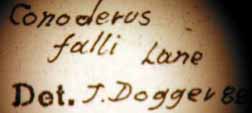 Conoderus
falli Lane
Det. J. Dogger